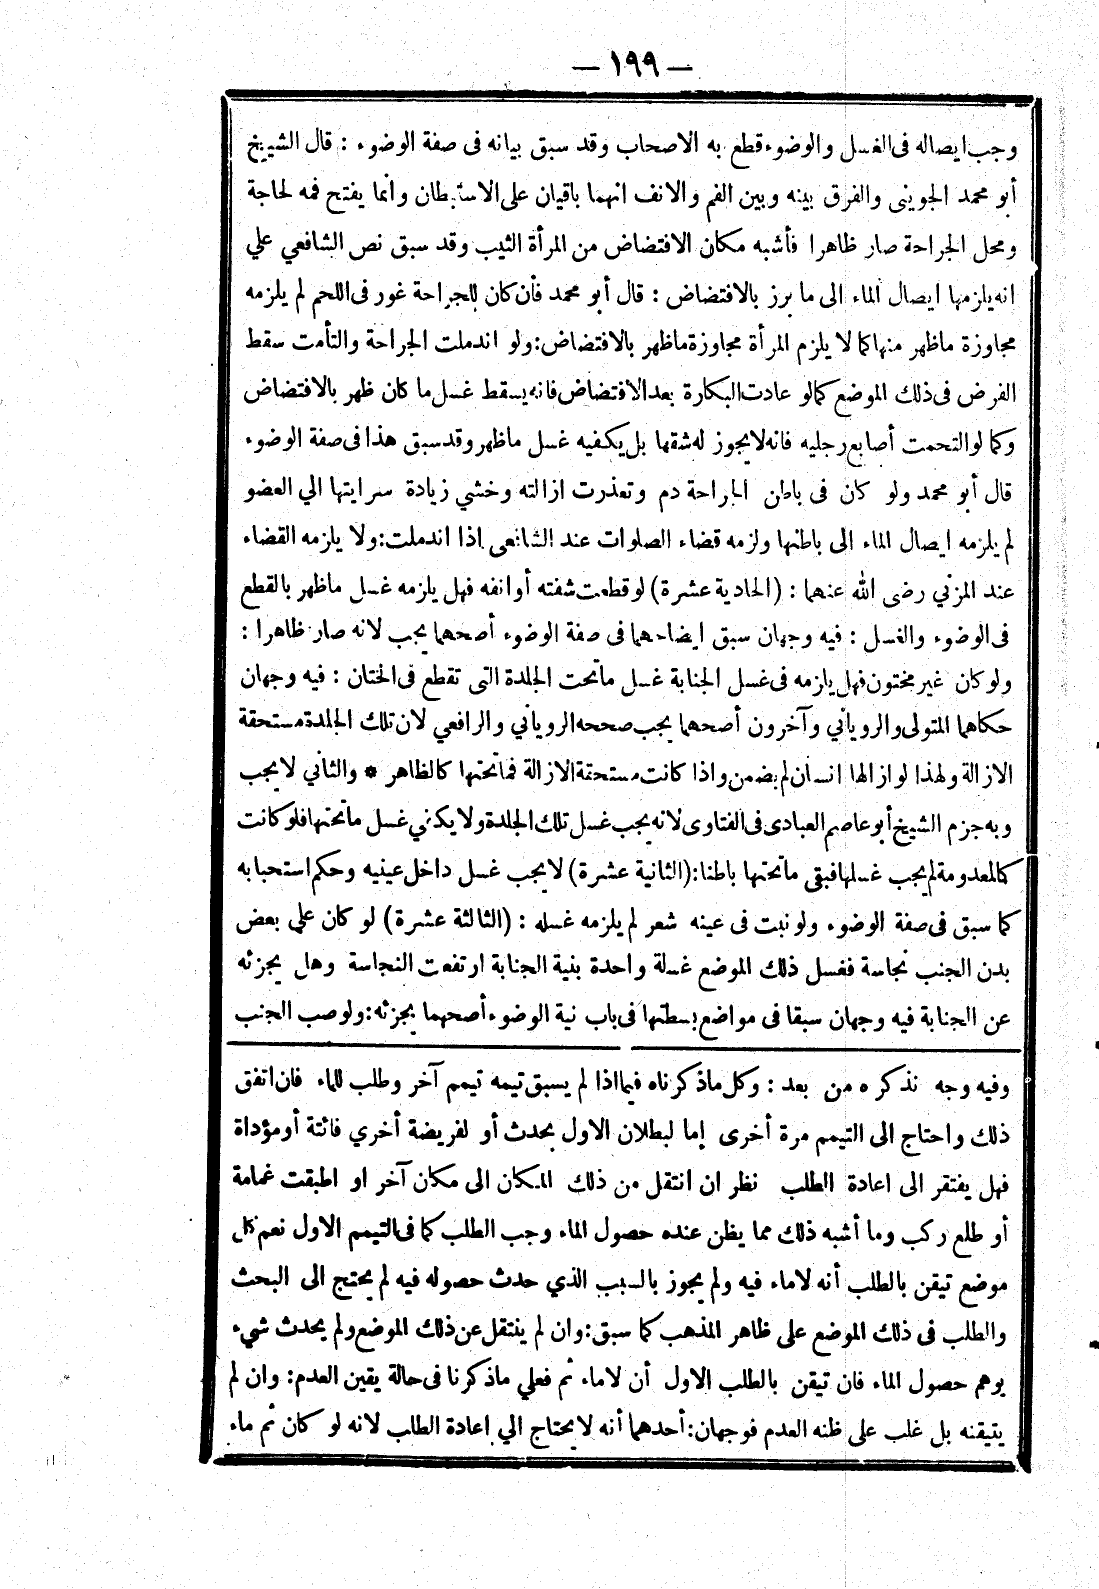 — ١٩٩ —
وجب ايصاله فى الغسل والوضوء قطع به الاصحاب وقد سبق بيانه فى صفة الوضوء : قال الشيخ
أبو محمد الجوينى والفرق بينه وبين الفم والانف انهما باقيان على الاستبطان وانما يفتح فمه لحاجة
ومحل الجراحة صار ظاهرا فأشبه مكان الافتضاض من المرأة الثيب وقد سبق نص الشافعي علي
انه يلزمها ايصال الماء الى ما برز بالافتضاض : قال أبو محمد فان كان للجراحة غور فى اللحم لم يلزمه
مجاوزة ماظهر منها كما لا يلزم المرأة مجاوزة ماظهر بالافتضاض : ولو اندملت الجراحة والتأمت سقط
الفرض فى ذلك الموضع كما لو عادت البكارة بعد الافتضاض فانه يسقط غسل ما كان ظهر بالافتضاض
وكما لو التحمت أصابع رجليه فانه لا يجوز له شقها بل يكفيه غسل ماظهر وقد سبق هذا فى صفة الوضوء
قال أبو محمد ولو كان فى باطن الجراحة دم وتعذرت ازالته وخشي زيادة سرايتها الي العضو
لم يلزمه ايصال الماء الى باطنها ولزمه قضاء الصلوات عند الشافعى اذا اندملت : ولا يلزمه القضاء
عند المزني رضى الله عنهما : (الحادية عشرة) لو قطعت شفته أو انفه فهل يلزمه غسل ماظهر بالقطع
فى الوضوء والغسل : فيه وجهان سبق ايضاحهما فى صفة الوضوء أصحهما يجب لانه صار ظاهرا :
ولو كان غير مختون فهل يلزمه فى غسل الجنابة غسل ماتحت الجلدة التى تقطع فى الختان : فيه وجهان
حكاهما المتولى والروياني وآخرون أصحهما يجب صححه الروياني والرافعي لان تلك الجلدة مستحقة
الازالة ولهذا لو ازالها انسان لم يضمن واذا كانت مستحقة الازالة فما تحتها كالظاهر * والثاني لا يجب
وبه جزم الشيخ أبو عاصم العبادى فى الفتاوى لانه يجب غسل تلك الجلدة ولا يكفي غسل ماتحتها فلو كانت
كالمعدومة لم يجب غسلها فبقى ماتحتها باطنا : (الثانية عشرة) لا يجب غسل داخل عينيه وحكم استحبابه
كما سبق فى صفة الوضوء ولو نبت فى عينه شعر لم يلزمه غسله : (الثالثة عشرة) لو كان على بعض
بدن الجنب نجاسة فغسل ذلك الموضع غسلة واحدة بنية الجنابة ارتفعت النجاسة وهل يجزئه
عن الجنابة فيه وجهان سبقا فى مواضع بسطتها فى باب نية الوضوء أصحهما يجزئه : ولو صب الجنب
وفيه وجه نذكره من بعد : وكل ماذكرناه فيما اذا لم يسبق تيمه تيمم آخر وطلب للماء فان اتفق
ذلك واحتاج الى التيمم مرة أخرى إما لبطلان الاول بحدث أو لفريضة أخري فائتة أو مؤداة
فهل يفتقر الى اعادة الطلب نظر ان انتقل من ذلك المكان الى مكان آخر او اطبقت غمامة
أو طلع ركب وما أشبه ذلك مما يظن عنده حصول الماء وجب الطلب كما فى التيمم الاول نعم كل
موضع تيقن بالطلب أنه لاماء فيه ولم يجوز بالسبب الذي حدث حصوله فيه لم يحتج الى البحث
والطلب فى ذلك الموضع على ظاهر المذهب كما سبق : وان لم ينتقل عن ذلك الموضع ولم يحدث شيء
يوهم حصول الماء فان تيقن بالطلب الاول أن لاماء ثم فعلي ماذكرنا فى حالة يقين العدم : وان لم
يتيقنه بل غلب على ظنه العدم فوجهان : أحدهما أنه لا يحتاج الي اعادة الطلب لانه لو كان ثم ماء